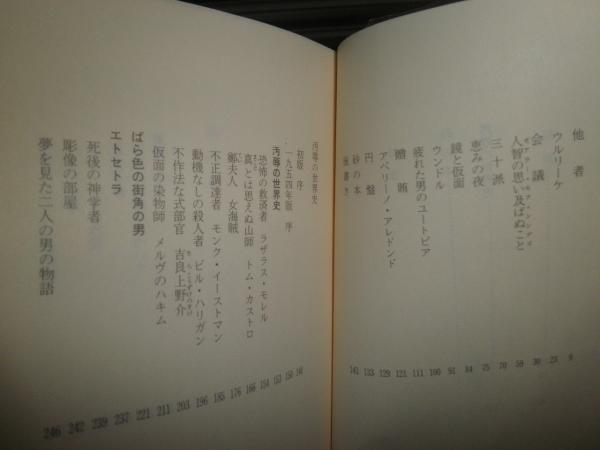 他者 9
ウルリーケ 23
会議 30
人智の思い及ばぬこと 59
三十派 70
恵みの夜 75
鏡と仮面 84
ウンドル 91
疲れた男のユートピア 100
贈賄 111
アベリーノ・アレドンド 121
円盤 129
砂の本 133
後書き 141
汚辱の世界史
初版 序 148
一九五四年版 序 150
汚辱の世界史 153
恐怖の救済者 ラザラス・モレル 154
真とは思えぬ山師 トム・カストロ 166
鄭夫人 女海賊 176
不正調達者 モンク・イーストマン 185
動機なしの殺人者 ビル・ハリガン 196
不作法な式部官 吉良上野介 203
仮面の染物師 メルヴのハキム 211
ばら色の街角の男 221
エトセトラ 237
死後の神学者 239
彫像の部屋 242
夢を見た二人の男の物語 246